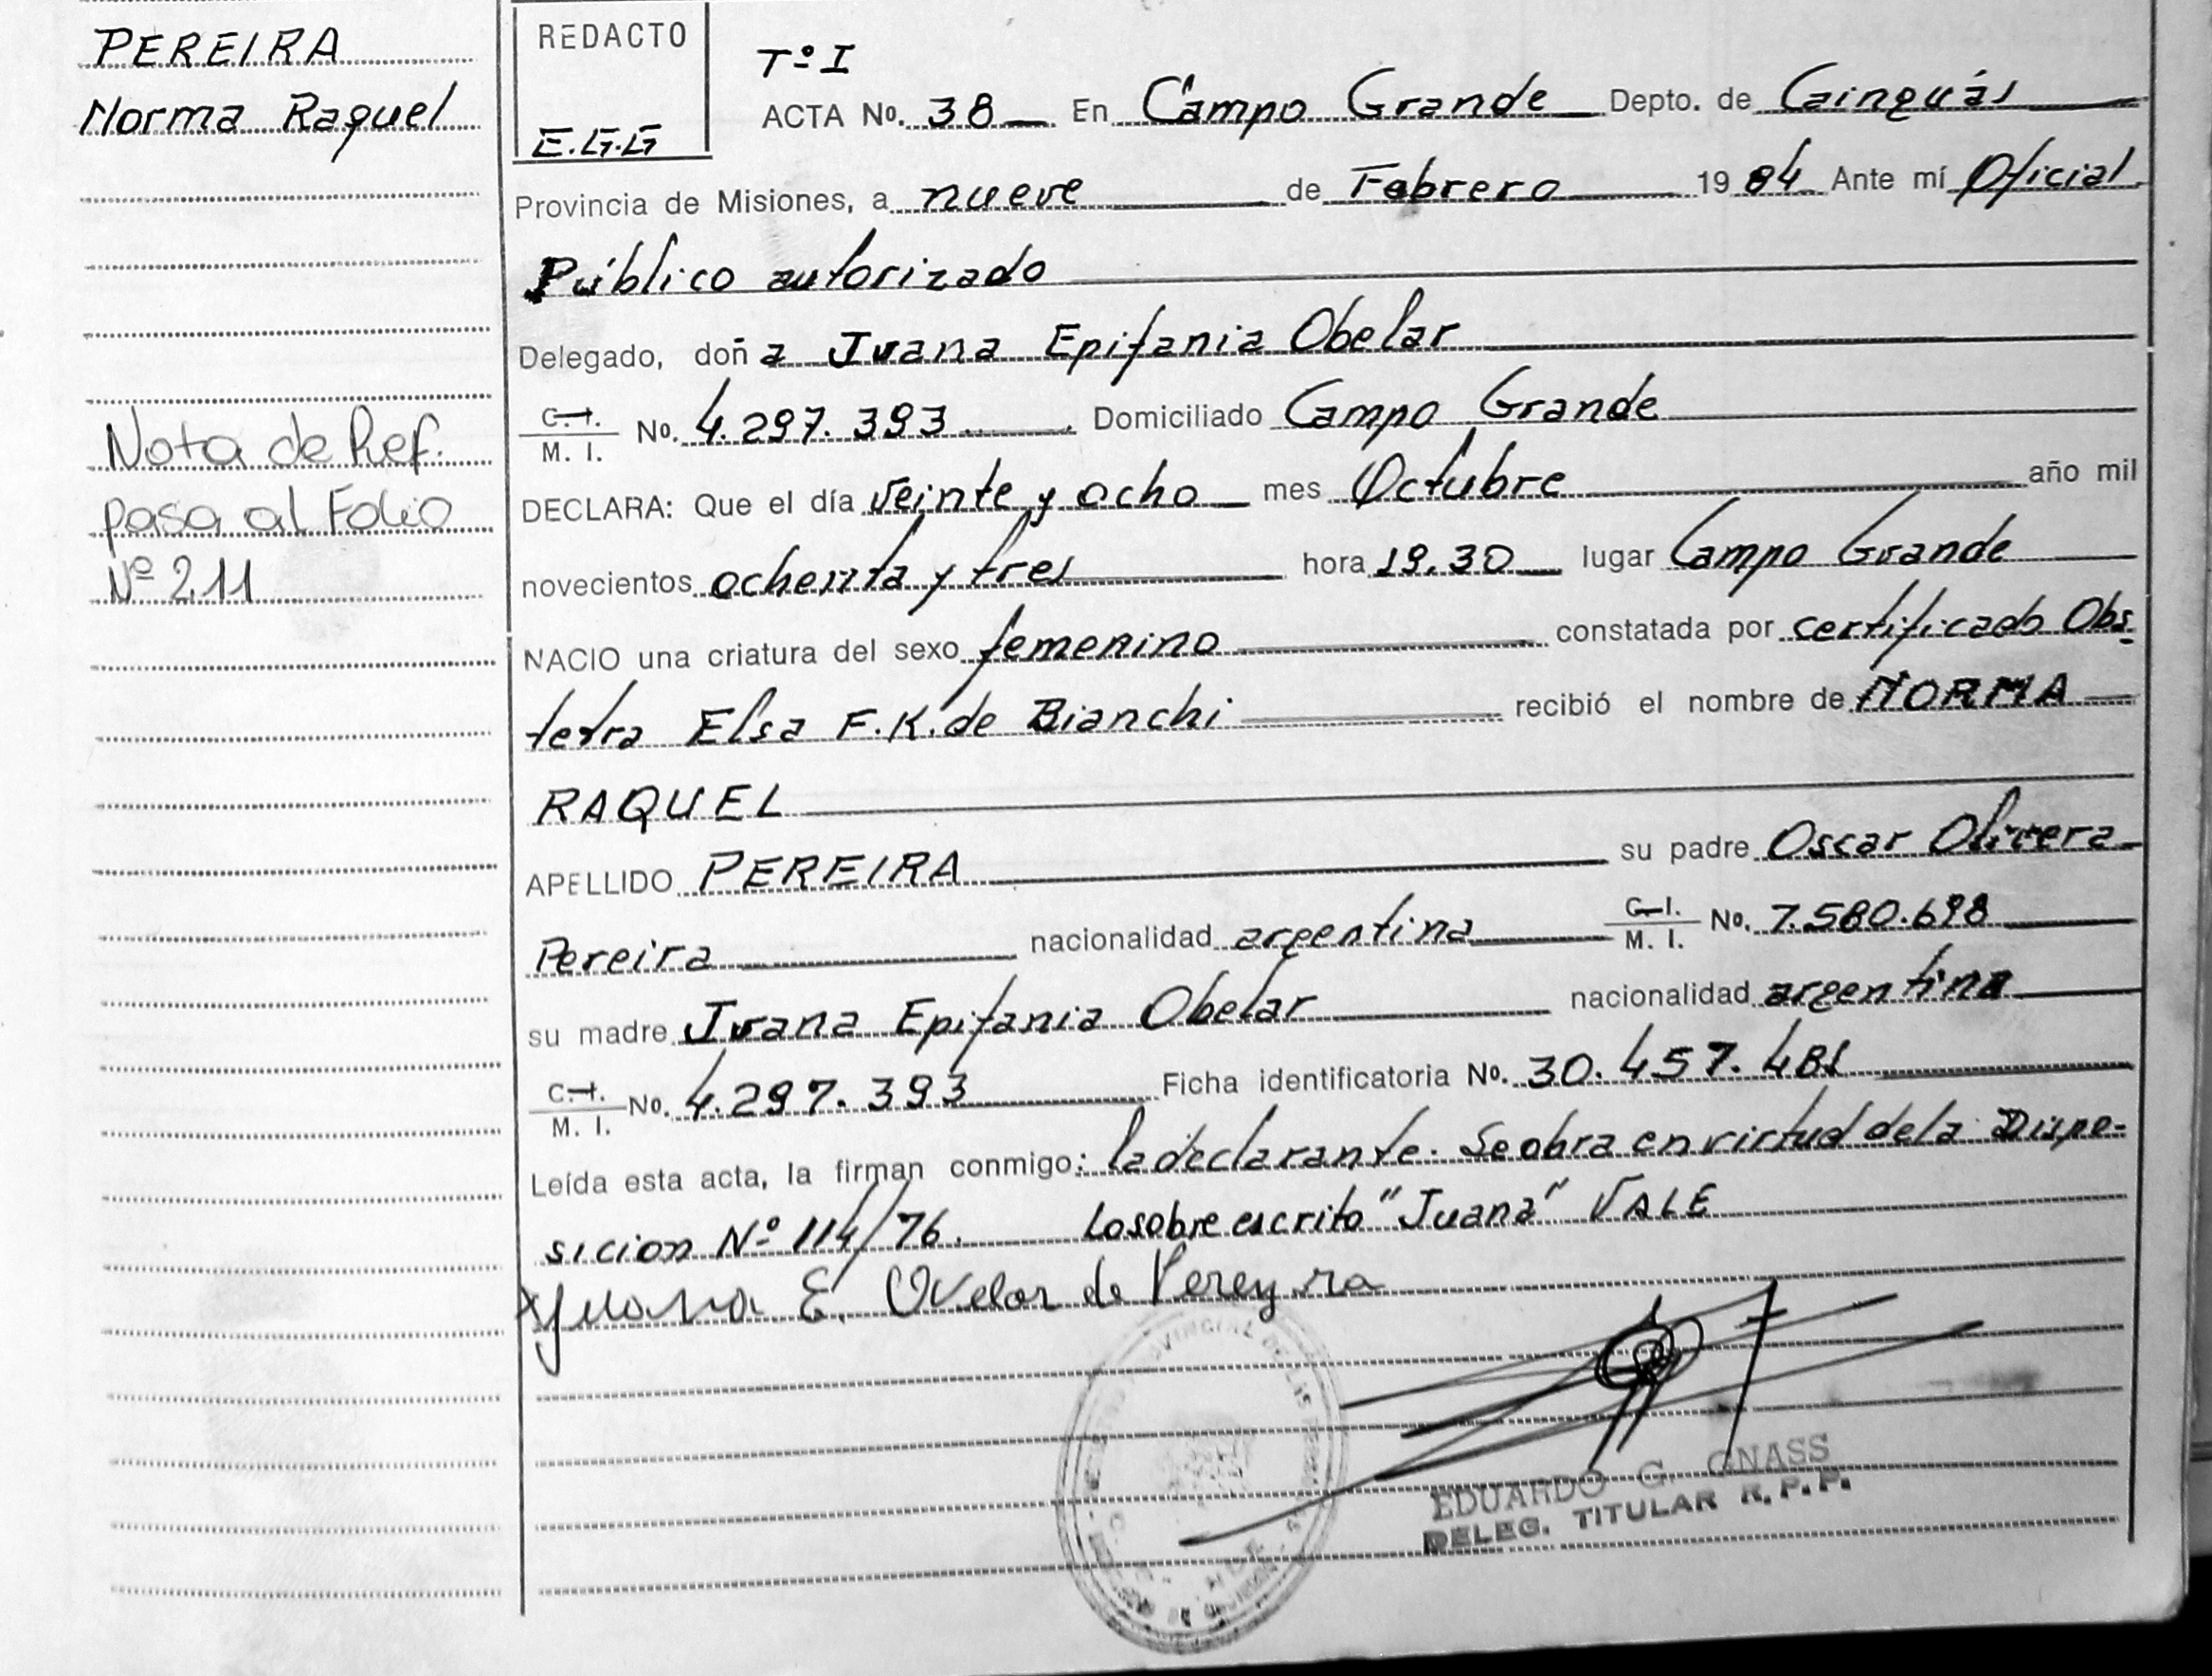 PEREIRA
Norma Raquel
Nota de Ref.
pasa al Folio
Nº 211
REDACTO
E.G.G
Tº I
ACTA No. 38 En Campo Grande Depto. de Cainguás
Provincia de Misiones, a nueve de Febrero 1984 Ante mí Oficial
Público autorizado
Delegado, doña Juana Epifania Obelar
C.I. M. I. No. 4.297.393 Domiciliado Campo Grande
DECLARA: Que el día veinte y ocho mes Octubre año mil
novecientos ochenta y tres hora 19.30 lugar Campo Grande
NACIO una criatura del sexo femenino constatada por certificado Obs
tetra Elsa F.K. de Bianchi recibió el nombre de NORMA
RAQUEL
APELLIDO PEREIRA su padre Oscar Olivera
Pereira nacionalidad argentina C.I. M. I. No. 7.580.698
su madre Juana Epifania Obelar nacionalidad argentina
C.I. M. I. No. 4.297.393 Ficha identificatoria No. 30.457.481
Leída esta acta, la firman conmigo: la declarante. Se obra en virtud de la Dispo-
sicion Nº 114/76. Lo sobre escrito "Juana" VALE
Juana E. Ovelar de Pereyra
EDUARDO G. GNASS
DELEG. TITULAR R.P.P.